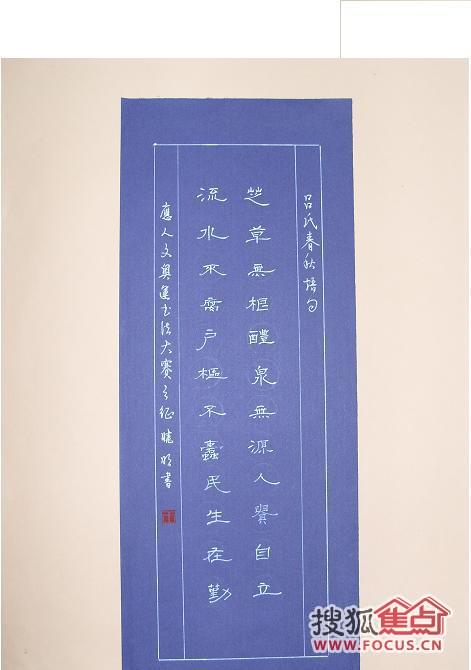 吕氏春秋语句
芝草無根醴泉無源人貴自立
流水不腐户樞不蠹民生在勤
應人文奥運书法大赛之征 書
搜狐焦点
WWW.FOCUS.CN